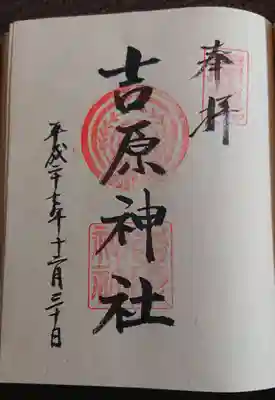 奉拝
吉原神社
平成二十七年十二月三十日